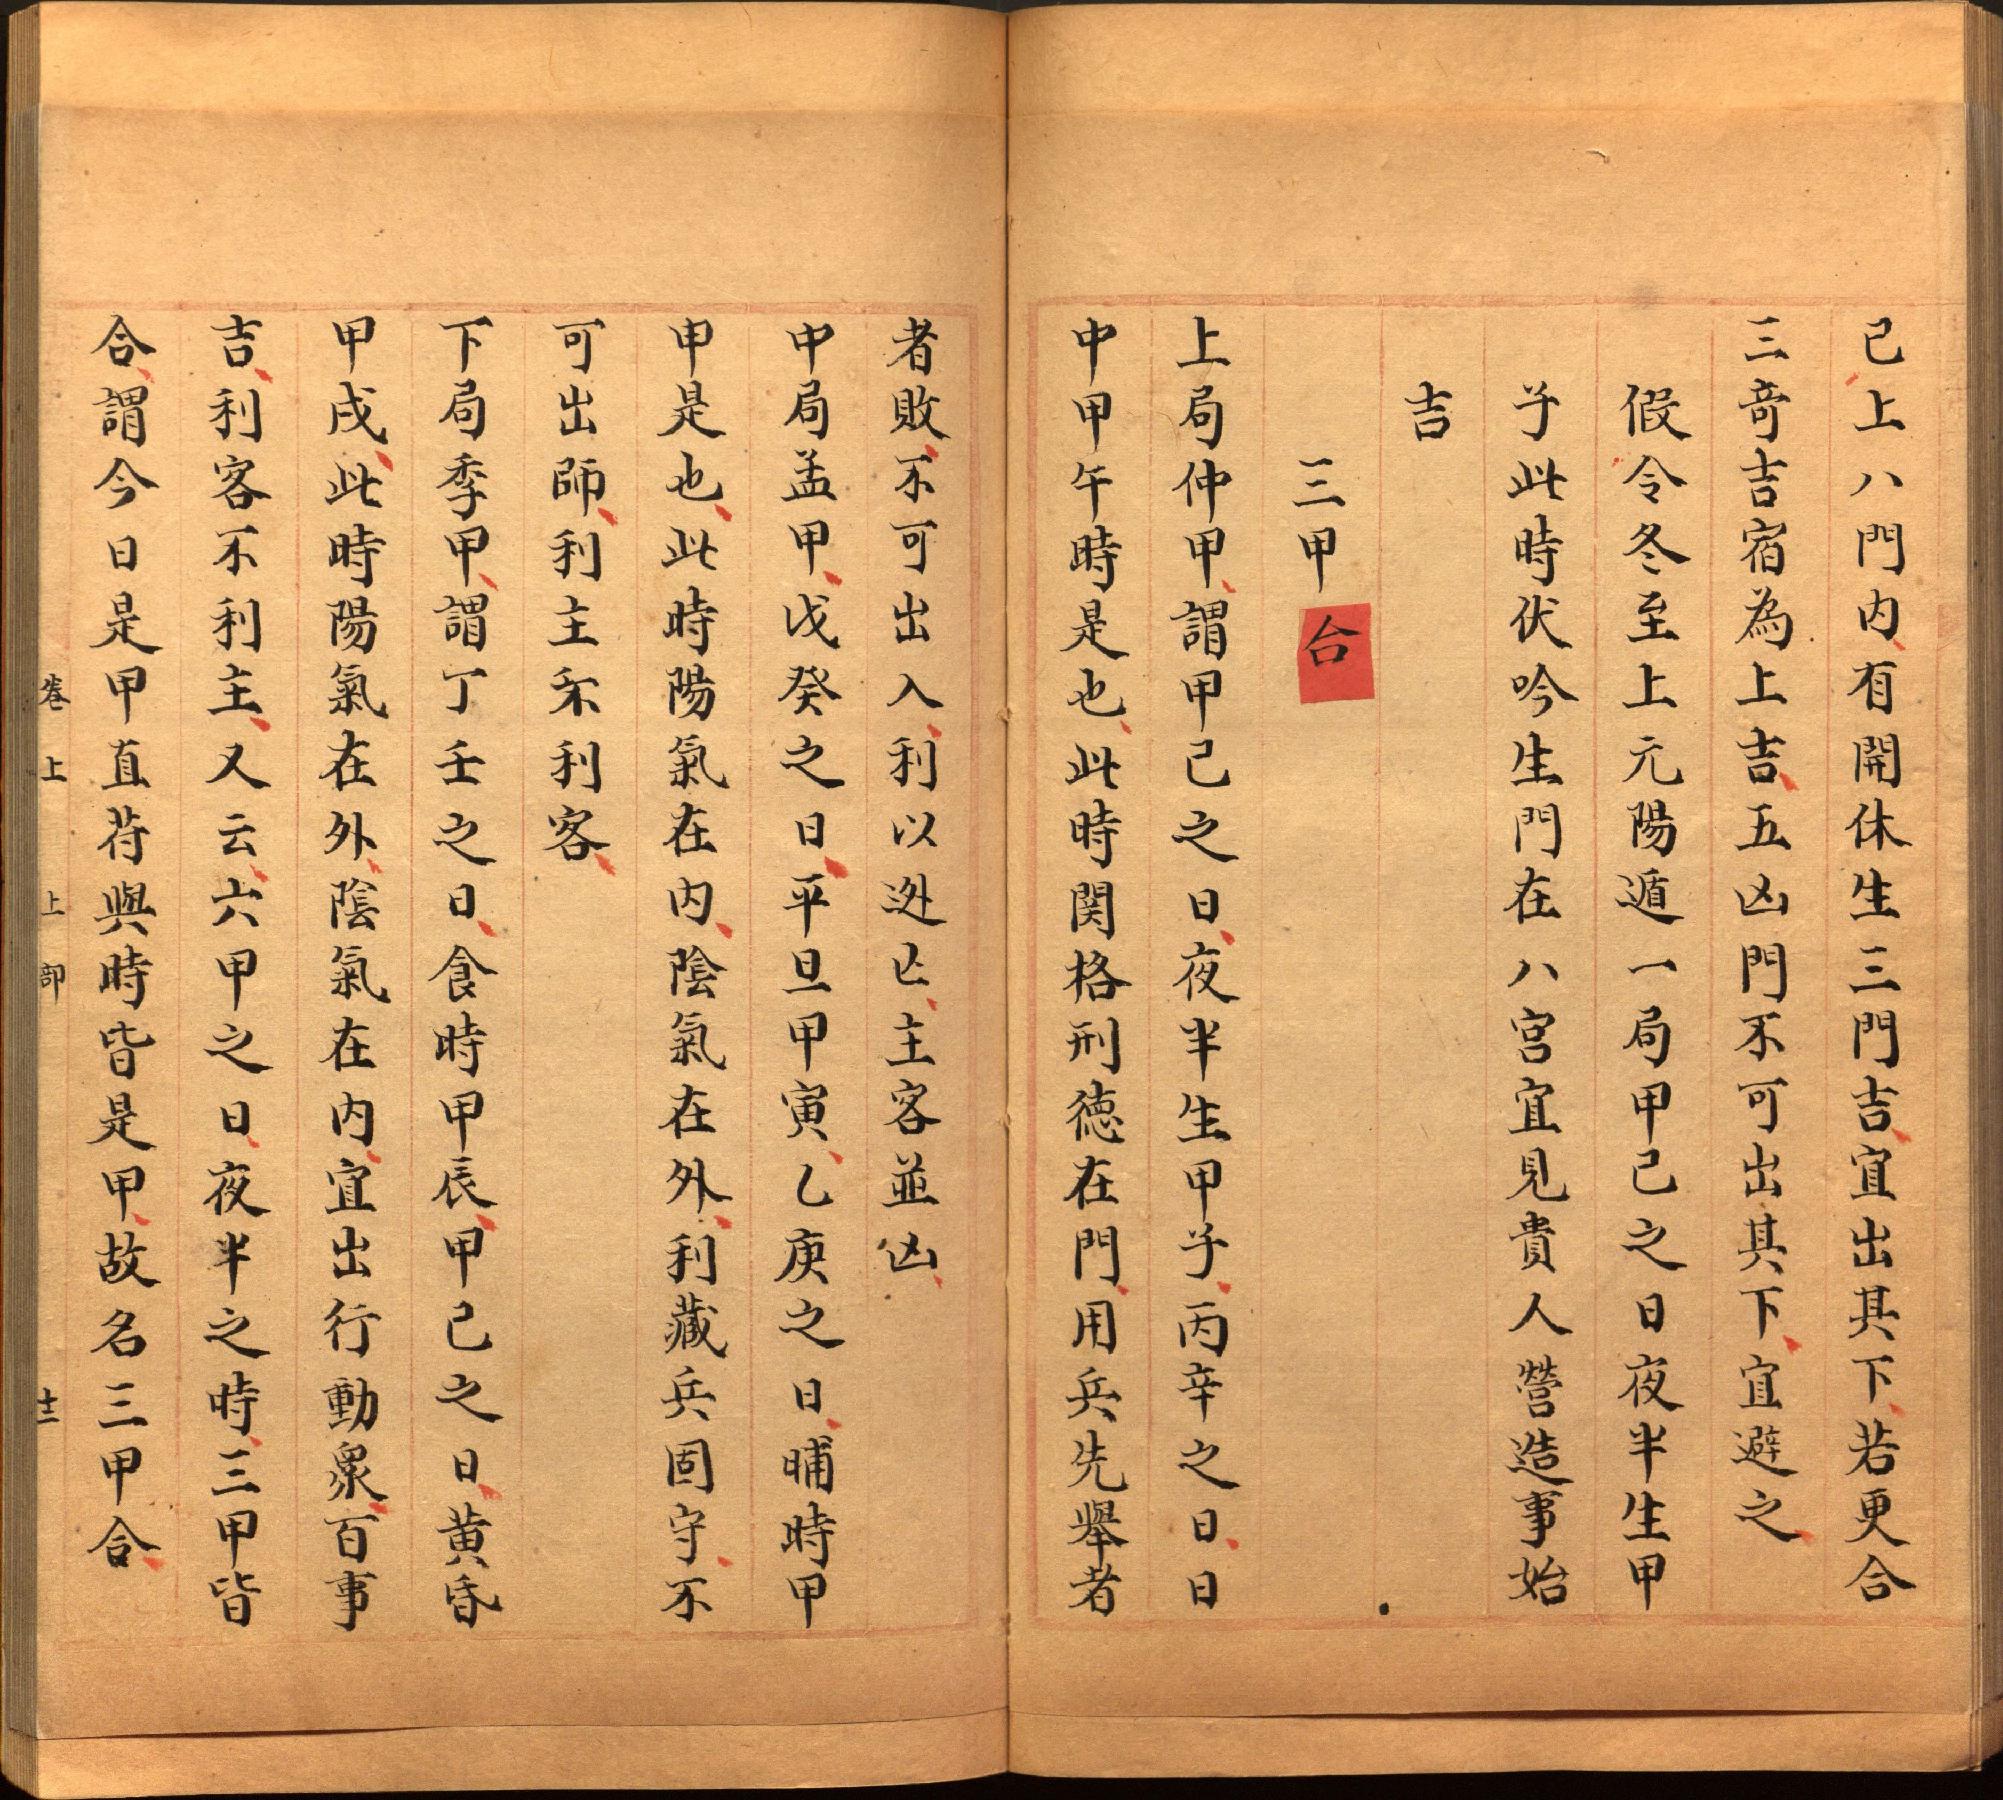 已上八門内有開休生三門吉宜出其下若更合
三竒吉宿為上吉五凶門不可出其下宜避之
假令冬至上元陽遁一局甲己之日夜半生甲
子此時伏吟生門在八宮宜見貴人營造事始
吉
三甲合
上局仲甲謂甲己之日夜半生甲子丙辛之日日
中甲午時是也此時関格刑德在門用兵先舉者
者敗不可出入利以逃亡主客並凶
中局孟甲戊癸之日平旦甲寅乙庚之日晡時甲
申是也此時陽氣在内陰氣在外利藏兵固守不
可出師利主不利客
下局季甲謂丁壬之日食時甲辰甲己之日黄昏
甲戌此時陽氣在外陰氣在内宜出行動衆百事
吉利客不利主又云六甲之日夜半之時三甲皆
合謂今日是甲直苻與時皆是甲故名三甲合
卷上 上部 十二